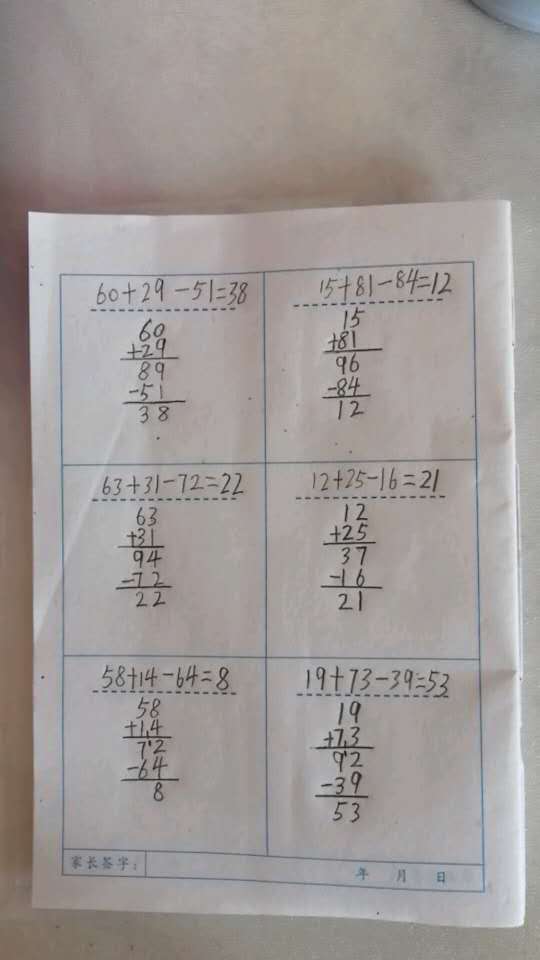 60+29-51=38
60
+29
89
-51
38
15+81-84=12
15
+81
96
-84
12
63+31-72=22
63
+31
94
-72
22
12+25-16=21
12
+25
37
-16
21
58+14-64=8
58
+14
72
-64
8
19+73-39=53
19
+73
92
-39
53
家长签字：
年 月 日